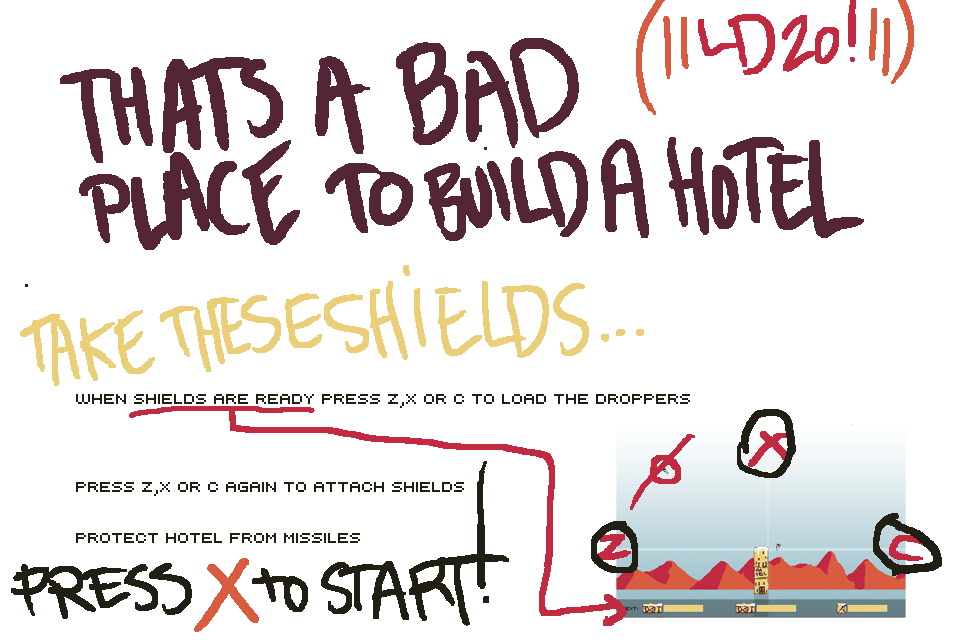 ((||LD20!||))
THATS A BAD
PLACE TO BUILD A HOTEL
TAKE THESE SHIELDS...
WHEN SHIELDS ARE READY PRESS Z,X OR C TO LOAD THE DROPPERS
X
PRESS Z,X OR C AGAIN TO ATTACH SHIELDS
PROTECT HOTEL FROM MISSILES
Z
C
PRESS X to START!